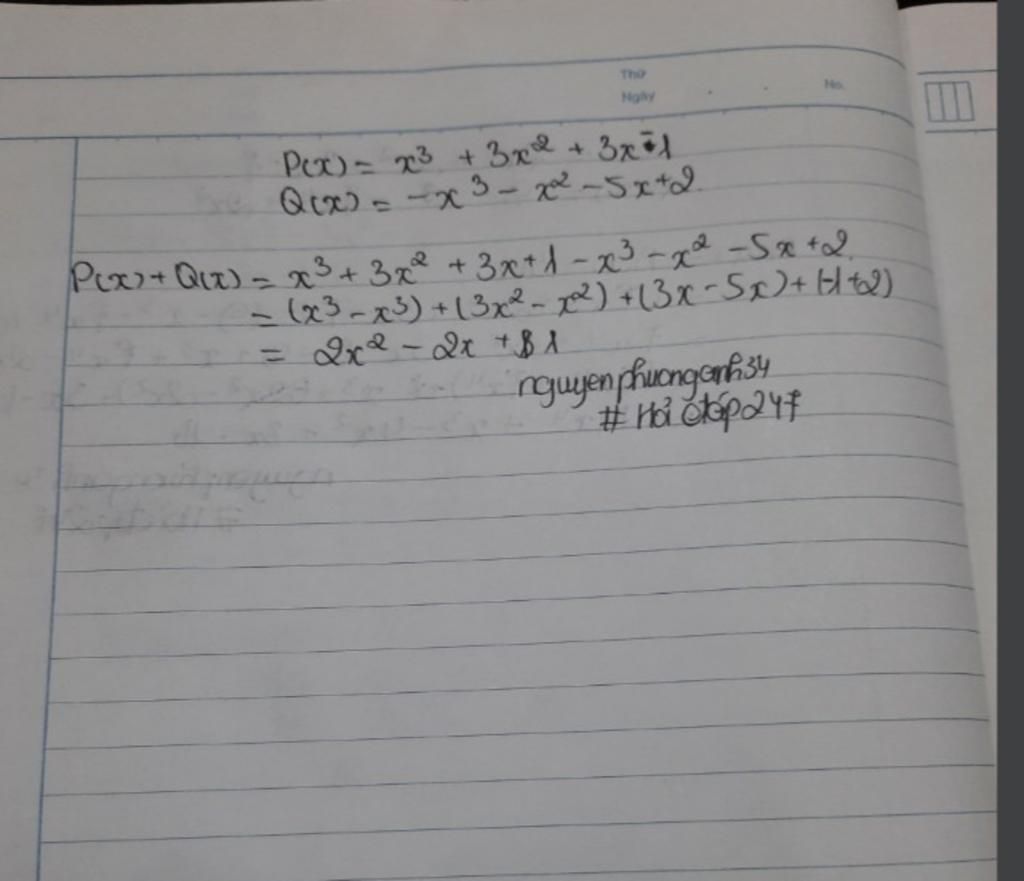 Thứ
Ngày
No.
P(x) = x³ + 3x² + 3x - 1
Q(x) = -x³ - x² - 5x + 2.
P(x) + Q(x) = x³ + 3x² + 3x + 1 - x³ - x² - 5x + 2.
= (x³ - x³) + (3x² - x²) + (3x - 5x) + (-1 + 2)
= 2x² - 2x + 1
nguyenphuonganh34
# Hỏi đáp 247